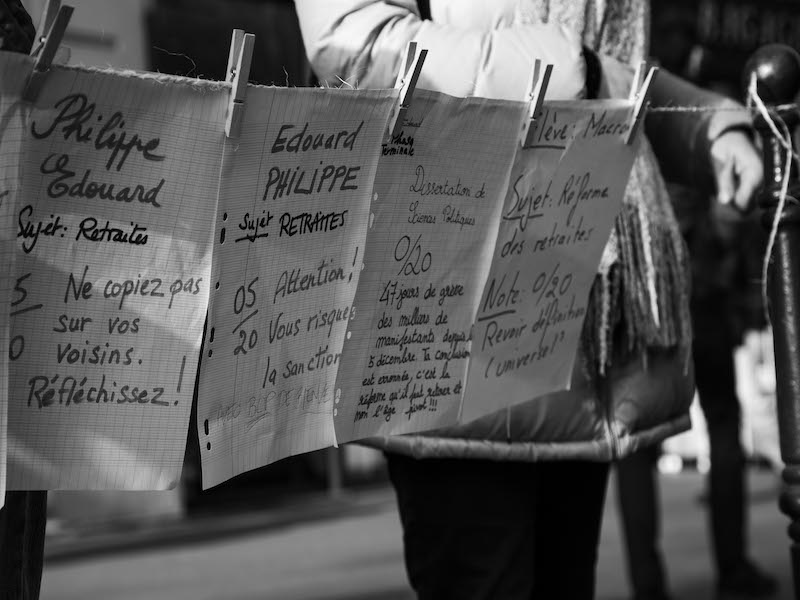 Philippe
Edouard
Sujet: Retraites
5
0
Ne copiez pas
sur vos
voisins.
Réfléchissez!
Edouard
PHILIPPE
Sujet RETRAITES
05
20
Attention!
Vous risquez
la sanction
Phase
Terminale
Dissertation de
Sciences Politiques
0/20
47 jours de grève
des milliers de
manifestants depuis le
5 décembre. Ta conclusion
est erronée, c'est la
réforme qu'il faut retirer et
non l'âge pivot!!!
Elève: Macron
Sujet: Réforme
des retraites
Note: 0/20
Revoir définition
("universel")